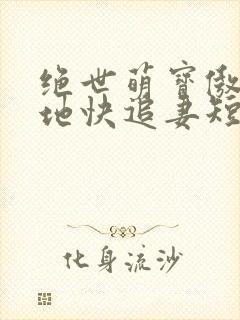 绝世萌寶傲
地快追妻短
化身流沙